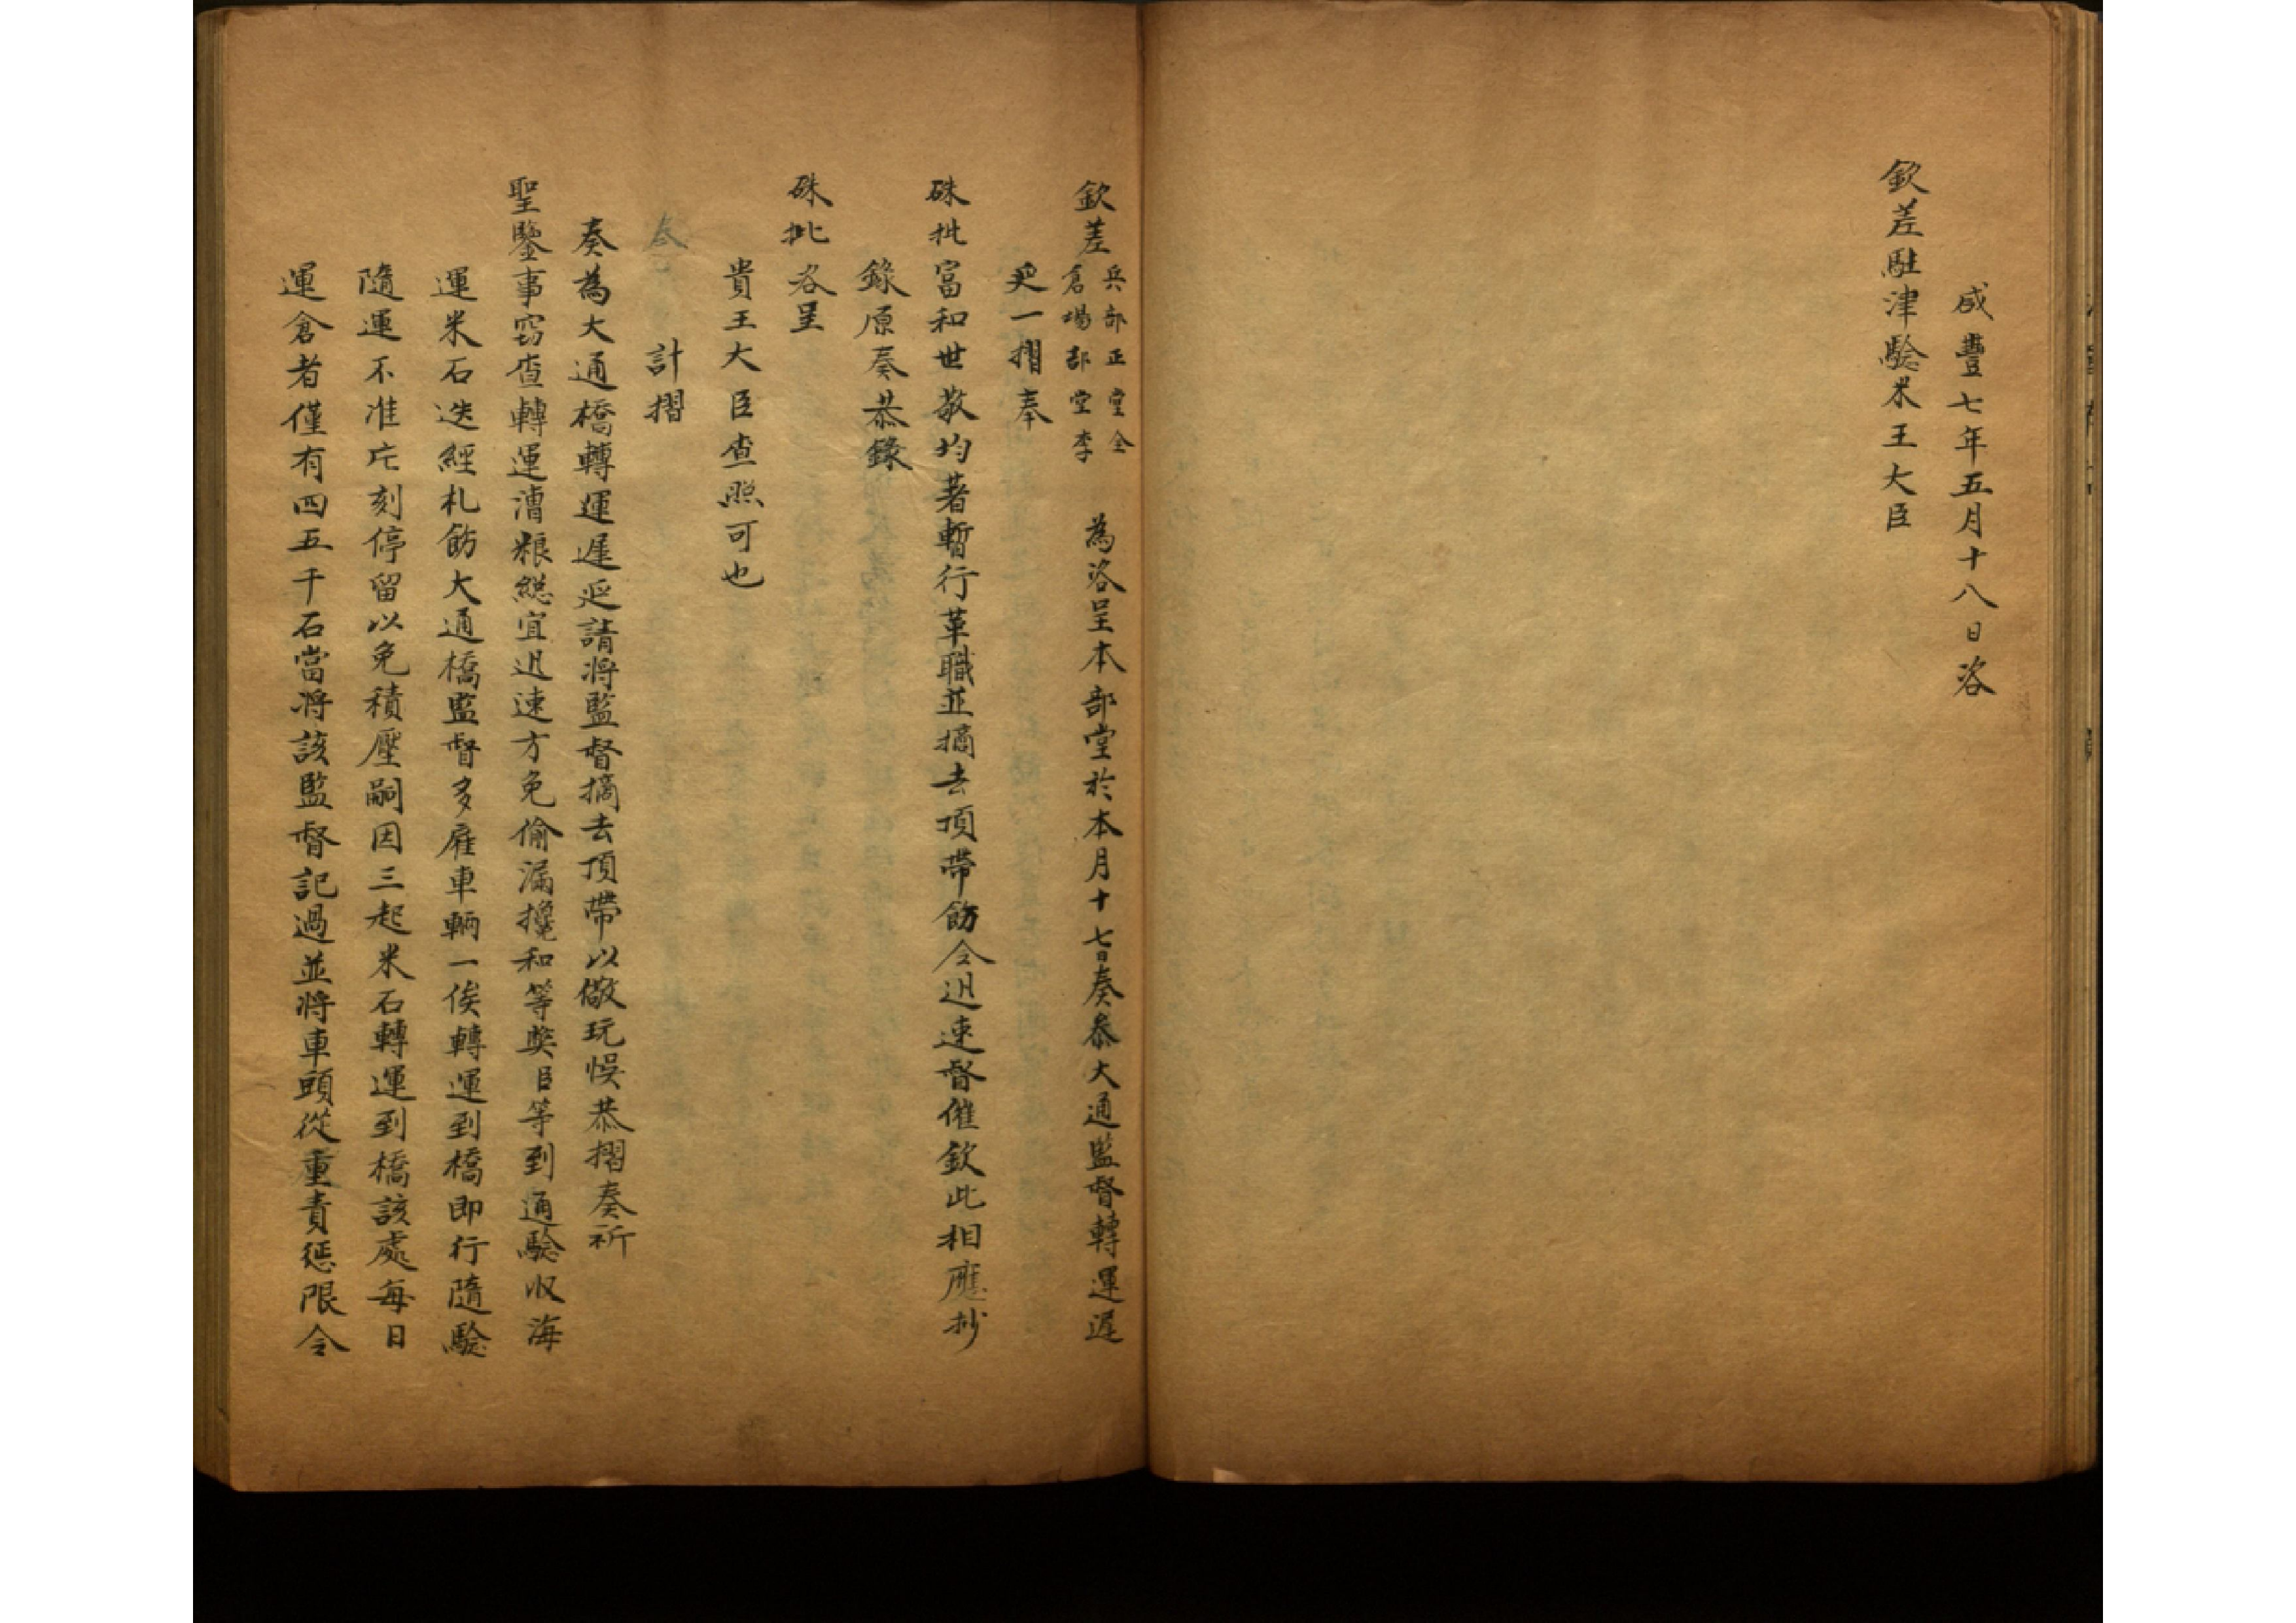 咸豐七年五月十八日咨
欽差駐津驗米王大臣
欽差兵部正堂全倉塲部堂李 為咨呈本部堂於本月十七日奏叅大通監督轉運遲
延一摺奉
硃批富和世敬均著暫行革職並摘去頂帶飭令迅速督催欽此相應抄
錄原奏恭錄
硃批咨呈
貴王大臣查照可也
計摺
奏為大通橋轉運遲延請將監督摘去頂帶以儆玩悞恭摺奏祈
聖鑒事竊查轉運漕粮總宜迅速方免偷漏攙和等獘臣等到通驗収海
運米石迭經札飭大通橋監督多雇車輛一俟轉運到橋即行隨驗
隨運不准片刻停留以免積壓嗣因三起米石轉運到橋該處每日
運倉者僅有四五千石當將該監督記過並將車頭從重責惩限令